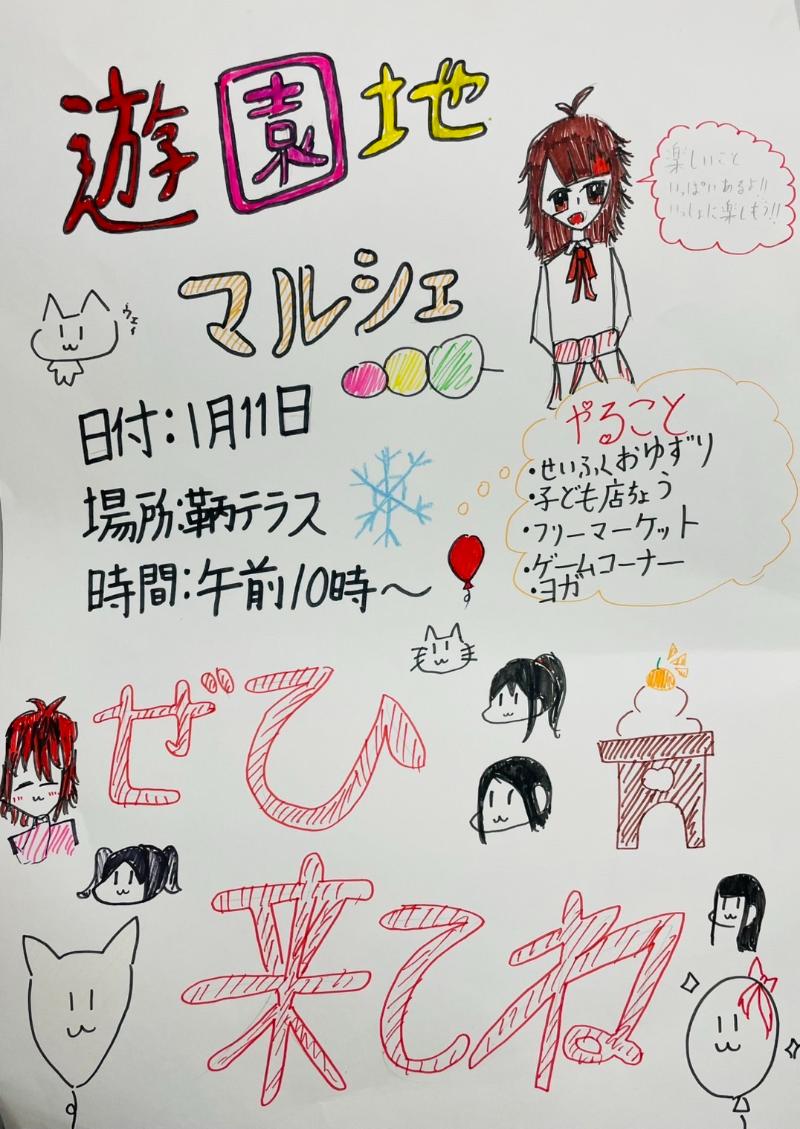 遊園地
楽しいこと
いっぱいあるよ!!
いっしょに楽しもう!!
マルシェ
日付:1月11日
場所:鞆テラス
時間:午前10時〜
やること
・せいふくおゆずり
・子ども店ちょう
・フリーマーケット
・ゲームコーナー
・ヨガ
ぜひ
来てね